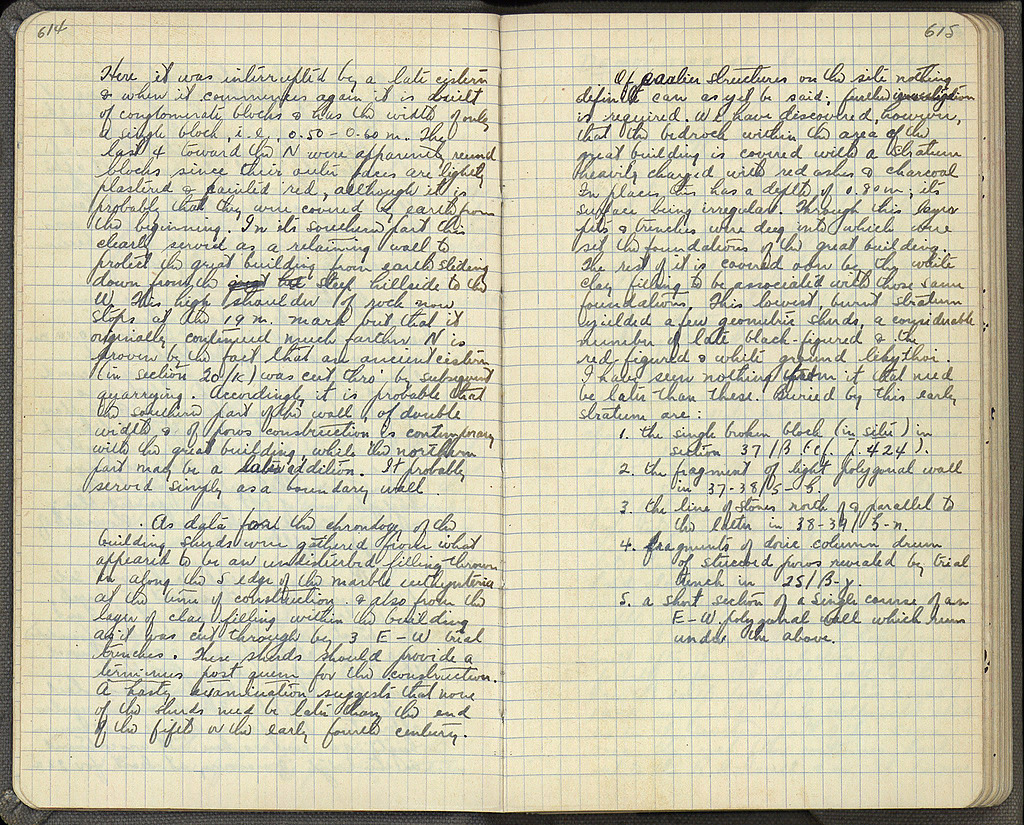 614
Here it was interrupted by a late cistern
& when it commences again it is built
of conglomerate blocks & has the width of only
a single block, i.e. 0.50-0.60 m. The
last 4 toward the N were apparently reused
blocks since their outer faces are lightly
plastered & painted red, although it is
probable that they were covered by earth from
the beginning. In its southern part this
clearly served as a retaining wall to
protect the great building from earth sliding
down from the steep hillside to the
W. This high shoulder of rock now
stops at the 19 m. mark but that it
originally continued much farther N is
proven by the fact that an ancient cistern
(in section 20/K) was cut thro' by subsequent
quarrying. Accordingly it is probable that
the southern part of the wall, of double
width & of poros construction is contemporary
with the great building, while the northern
part may be a later addition. It probably
served simply as a boundary wall.
As data for the chronology of the
building sherds were gathered from what
appeared to be an undisturbed filling thrown
in along the S edge of the marble euthynteria
at the time of construction & also from the
layer of clay filling within the building
as it was cut through by 3 E-W trial
trenches. These sherds should provide a
terminus post quem for the construction.
A hasty examination suggests that none
of the sherds need be later than the end
of the fifth or the early fourth century.
615
Of earlier structures on the site nothing
definite can as yet be said; further investigation
is required. We have discovered, however,
that the bedrock within the area of the
great building is covered with a stratum
heavily charged with red ashes & charcoal
In places this has a depth of 0.80 m, its
surface being irregular. Through this layer
pits & trenches were dug into which were
set the foundations of the great building.
The rest of it is covered over by the white
clay filling to be associated with those same
foundations. This lowest, burnt stratum
yielded a few geometric sherds, a considerable
number of late black-figured & the
red-figured & white ground lekythoi.
I have seen nothing from it that need
be later than these. Buried by this early
stratum are:
1. the single broken block (in situ) in
section 37/B (cf. p. 424).
2. the fragment of light polygonal wall
in 37-38/
3. the line of stones north of & parallel to
the latter in 38-39/
4. fragments of doric column drum
of stuccoed poros revealed by trial
trench in 25/B-γ.
5. a short section of a single course of an
E-W polygonal wall which runs
under the above.